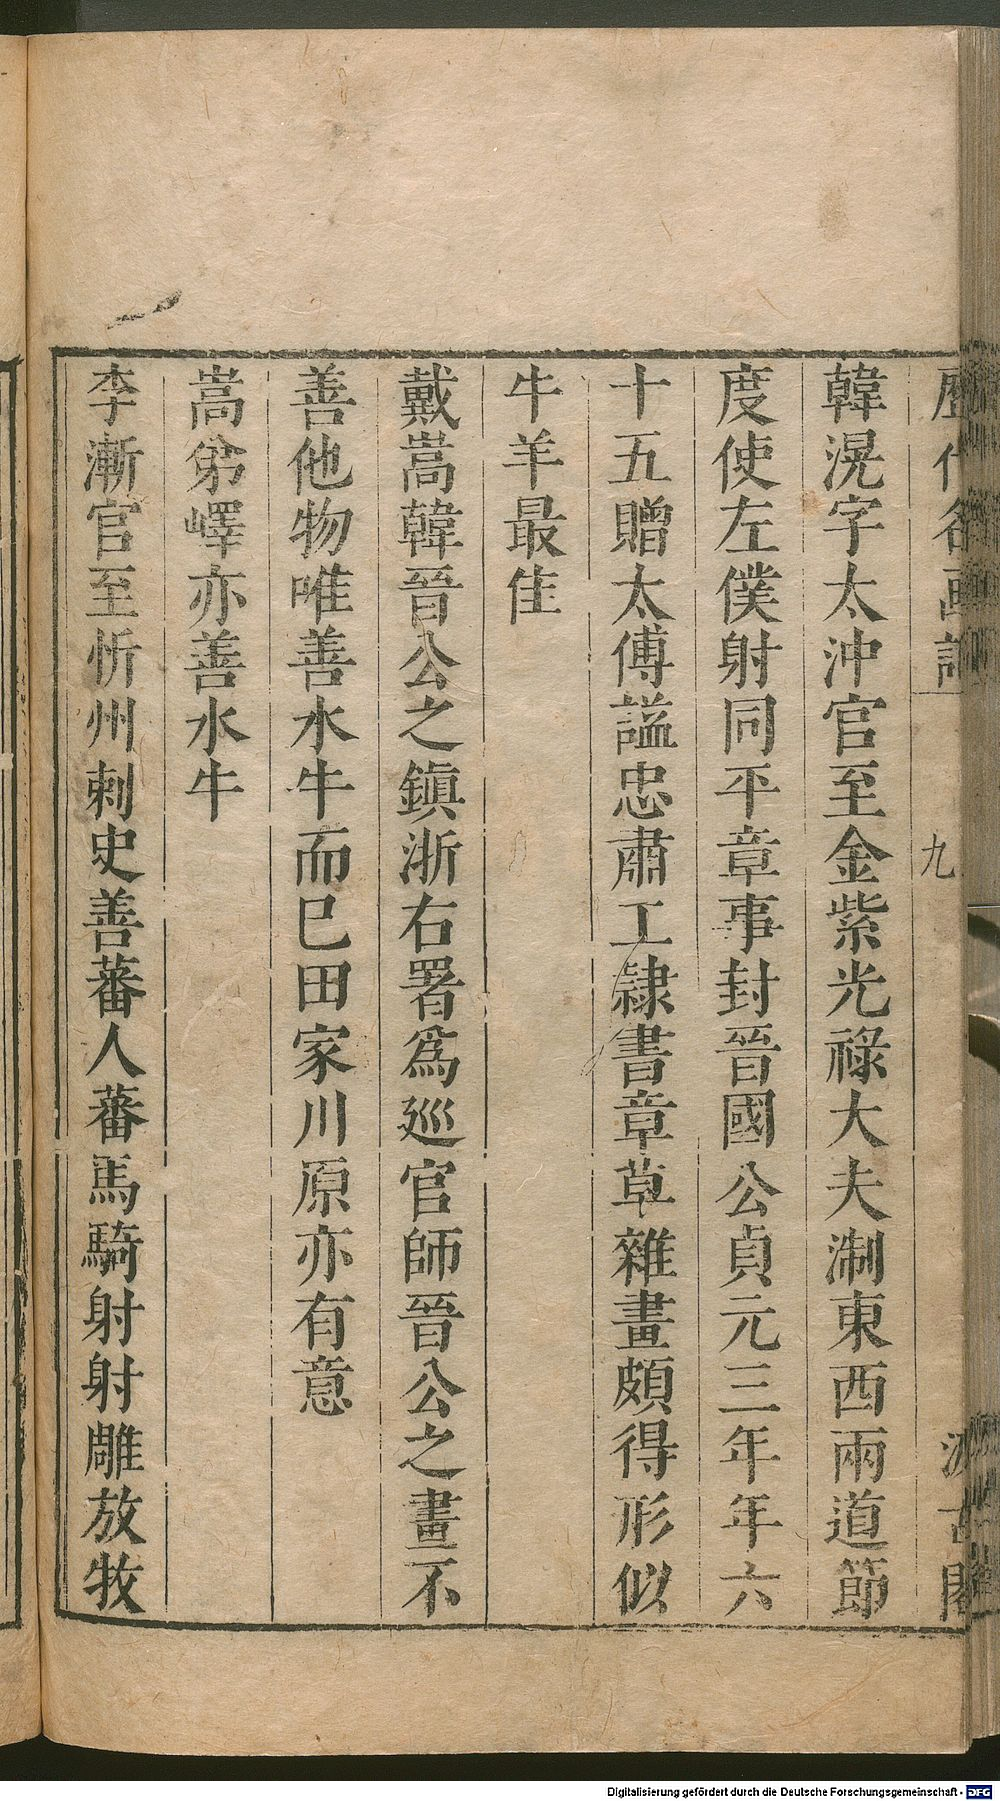 歷代名画記
九
汲古閣
韓滉字太沖官至金紫光祿大夫淛東西兩道節
度使左僕射同平章事封晉國公貞元三年年六
十五贈太傅謚忠肅工隷書章草雜畫頗得形似
牛羊最佳
戴嵩韓晉公之鎮浙右署爲巡官師晉公之畫不
善他物唯善水牛而巳田家川原亦有意
嵩弟嶧亦善水牛
李漸官至忻州刺史善蕃人蕃馬騎射射雕放牧
Digitalisierung gefördert durch die Deutsche Forschungsgemeinschaft - DFG